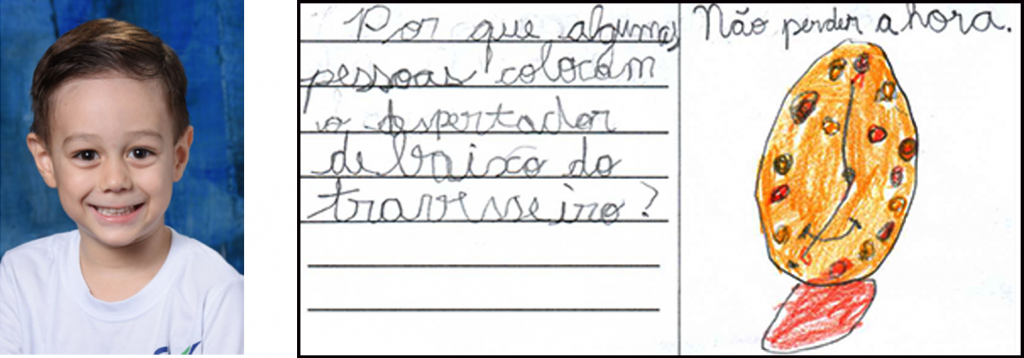 Por que algumas
pessoas colocam
o despertador
debaixo do
travesseiro?
Não perder a hora.